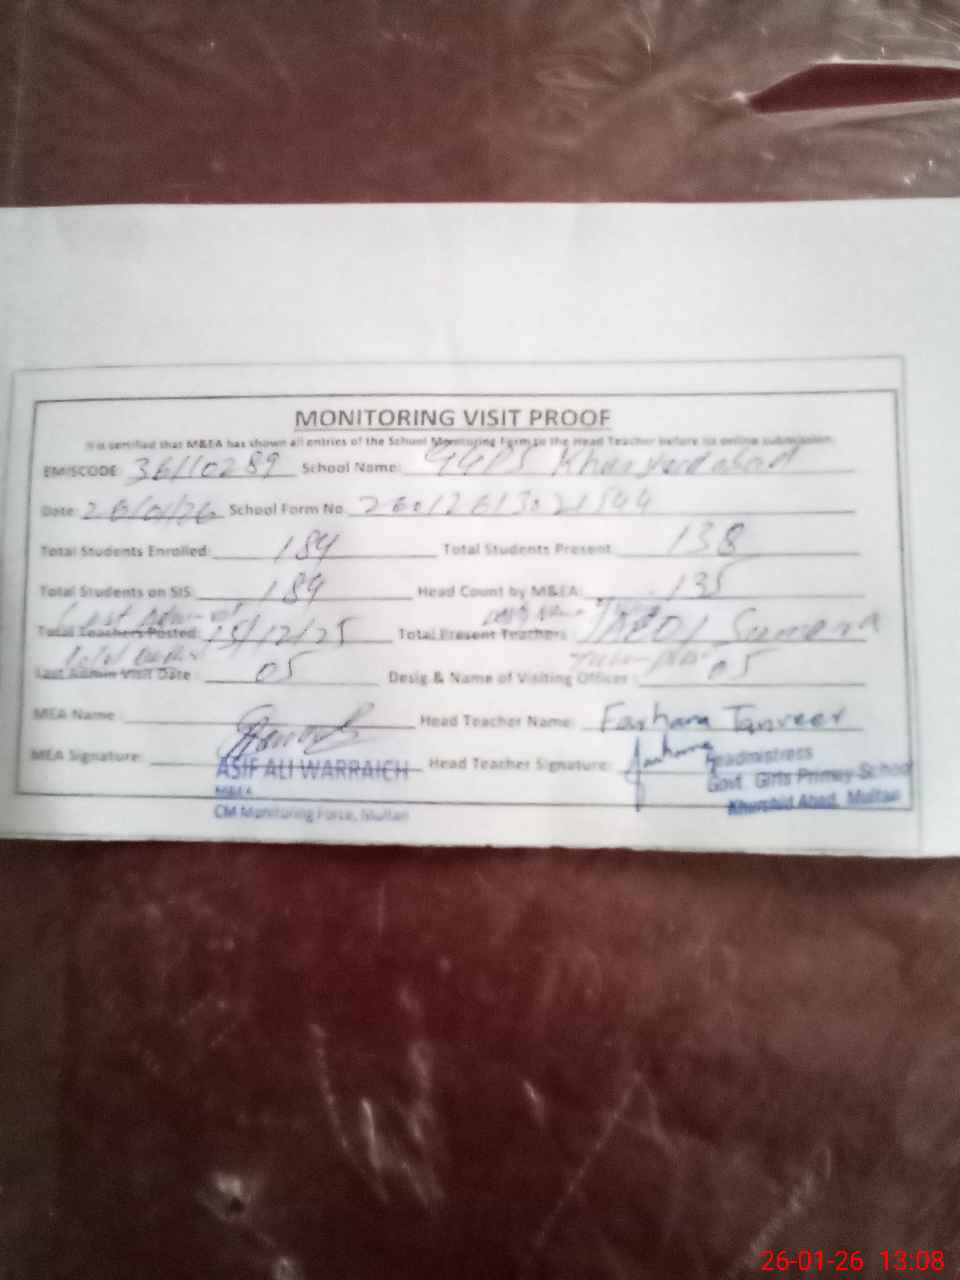 MONITORING VISIT PROOF
It is certified that M&EA has shown all entries of the School Monitoring Form to the Head Teacher before its online submission.
EMISCODE: 36110289 School Name: GGPS Khurshidabad
Date: 26/01/26 School Form No. 26012613021544
Total Students Enrolled: 184 Total Students Present: 138
Total Students on SIS: 184 Head Count by M&EA: 135
Last Admin
Total Teachers Posted: 15/12/25 Total Present Teachers: Sumera
Last Admin Visit Date: 05 Desig & Name of Visiting Officer: 05
MEA Name: Head Teacher Name: Farhana Tanveer
MEA Signature: Head Teacher Signature: Farhana
ASIF ALI WARRAICH
M&EA
CM Monitoring Force, Multan
Headmistress
Govt. Girls Primay School
Khurshid Abad, Multan
26-01-26 13:08